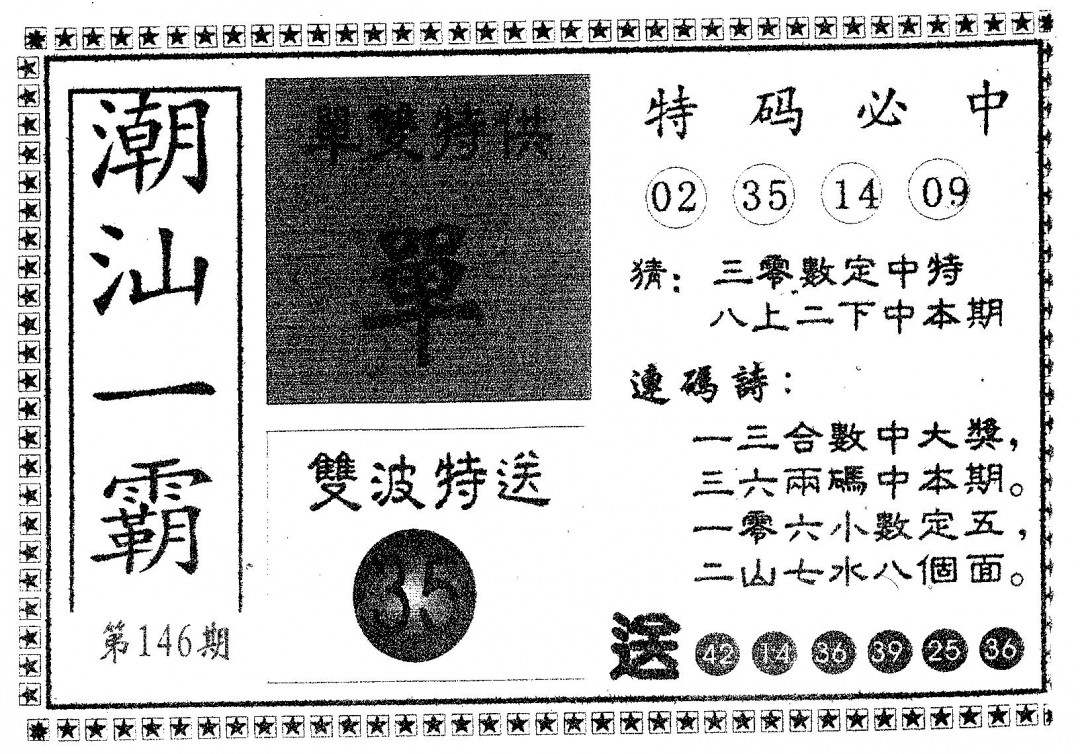 潮汕一霸
第146期
單雙特供
單
雙波特送
35
特码必中
02 35 14 09
猜：三零數定中特
八上二下中本期
連碼詩：
一三合數中大獎，
三六兩碼中本期。
一零六小數定五，
二山七水八個面。
送 42 14 36 39 25 36